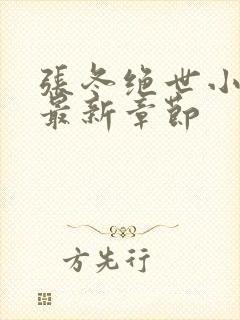 張冬绝世小
最新章節
方先行